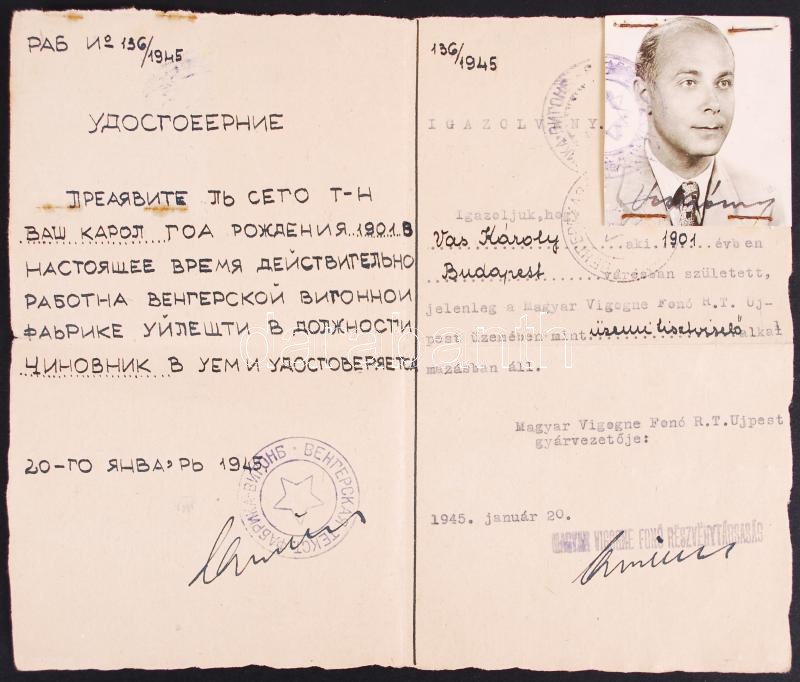 РАБ И° 136/1945
УДОСТОЕЕРНИЕ
ПРЕАЯВИТЕ ЛЬ СЕГО Т-Н
ВАШ КАРОЛ ГОА РОЖДЕНИЯ 1901 В
НАСТОЯЩЕЕ ВРЕМЯ ДЕЙСТВИТЕЛЬНО
РАБОТНА ВЕНГЕРСКОЙ ВИГОННОЙ
ФАБРИКЕ УЙЛЕШТИ В ДОЛЖНОСТИ
ЧИНОВНИК В УЕМ И УДОСТОВЕРЯЕТСЯ
20-ГО ЯНВАРЬ 1945
ВЕНГЕРСКАЯ ТЕКСТ. ФАБРИКА-ВИГОНЬ
136/1945
IGAZOLVÁNY.
Igazoljuk, hogy
Vas Károly aki 1901 évben
Budapest városban született,
jelenleg a Magyar Vigogne Fonó R.T. Uj-
pest üzenében mint üzemi tisztviselő alkal
mazásban áll.
Magyar Vigogne Fonó R.T.Ujpest
gyárvezetője:
1945. január 20.
MAGYAR VIGOGNE FONÓ RÉSZVÉNYTÁRSASÁG
darabanth